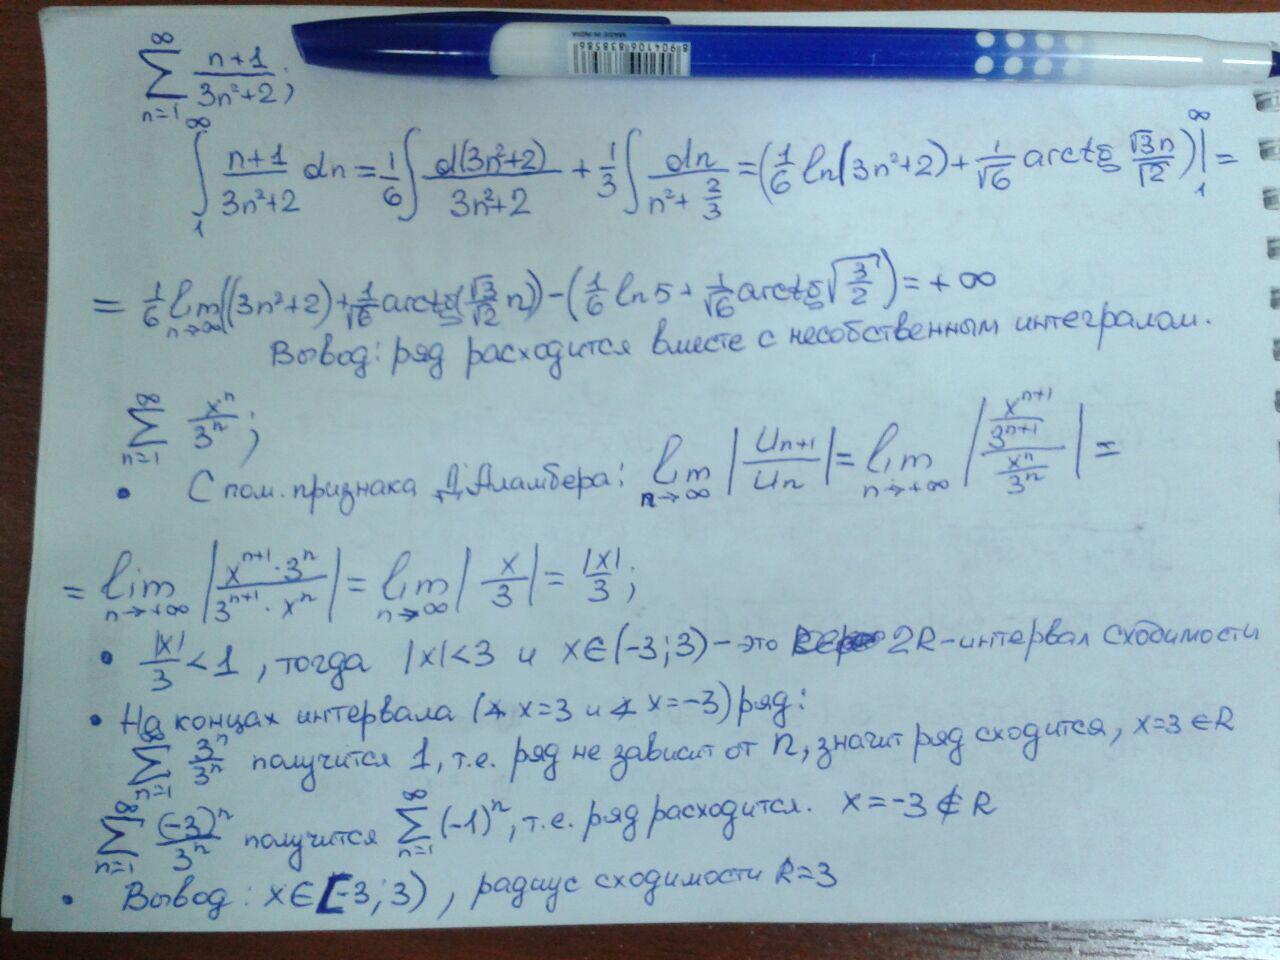 ∞ ∑ n=1 (n+1)/(3n²+2);
∫₁^∞ (n+1)/(3n²+2) dn = 1/6 ∫ d(3n²+2)/(3n²+2) + 1/3 ∫ dn/(n² + 2/3) = (1/6 ln(3n²+2) + 1/√6 arctg √3n/√2)|₁^∞ =
= 1/6 lim n→∞ ((3n²+2) + 1/√6 arctg(√3/√2 n) – (1/6 ln5 + 1/√6 arctg √(3/2)) = +∞
Вывод: ряд расходится вместе с несобственным интегралом.
∞ ∑ n=1 xⁿ/3ⁿ;
• С пом. признака Д'Аламбера: lim n→∞ |Un+1/Un| = lim n→+∞ |(xⁿ⁺¹/3ⁿ⁺¹)/(xⁿ/3ⁿ)| =
= lim n→+∞ |xⁿ⁺¹·3ⁿ/3ⁿ⁺¹·xⁿ| = lim n→∞ |x/3| = |x|/3;
• |x|/3 < 1, тогда |x|<3 и x∈(-3;3) – это 2R-интервал сходимости
• На концах интервала (∢ x=3 и ∢ x=-3) ряд:
∞ ∑ n=1 3ⁿ/3ⁿ получится 1, т.е. ряд не зависит от n, значит ряд сходится, x=3 ∈ R
∞ ∑ n=1 (-3)ⁿ/3ⁿ получится ∞ ∑ n=1 (-1)ⁿ, т.е. ряд расходится. x=-3 ∉ R
• Вывод: x∈[-3;3), радиус сходимости R=3
MADE IN INDIA
8904106838586